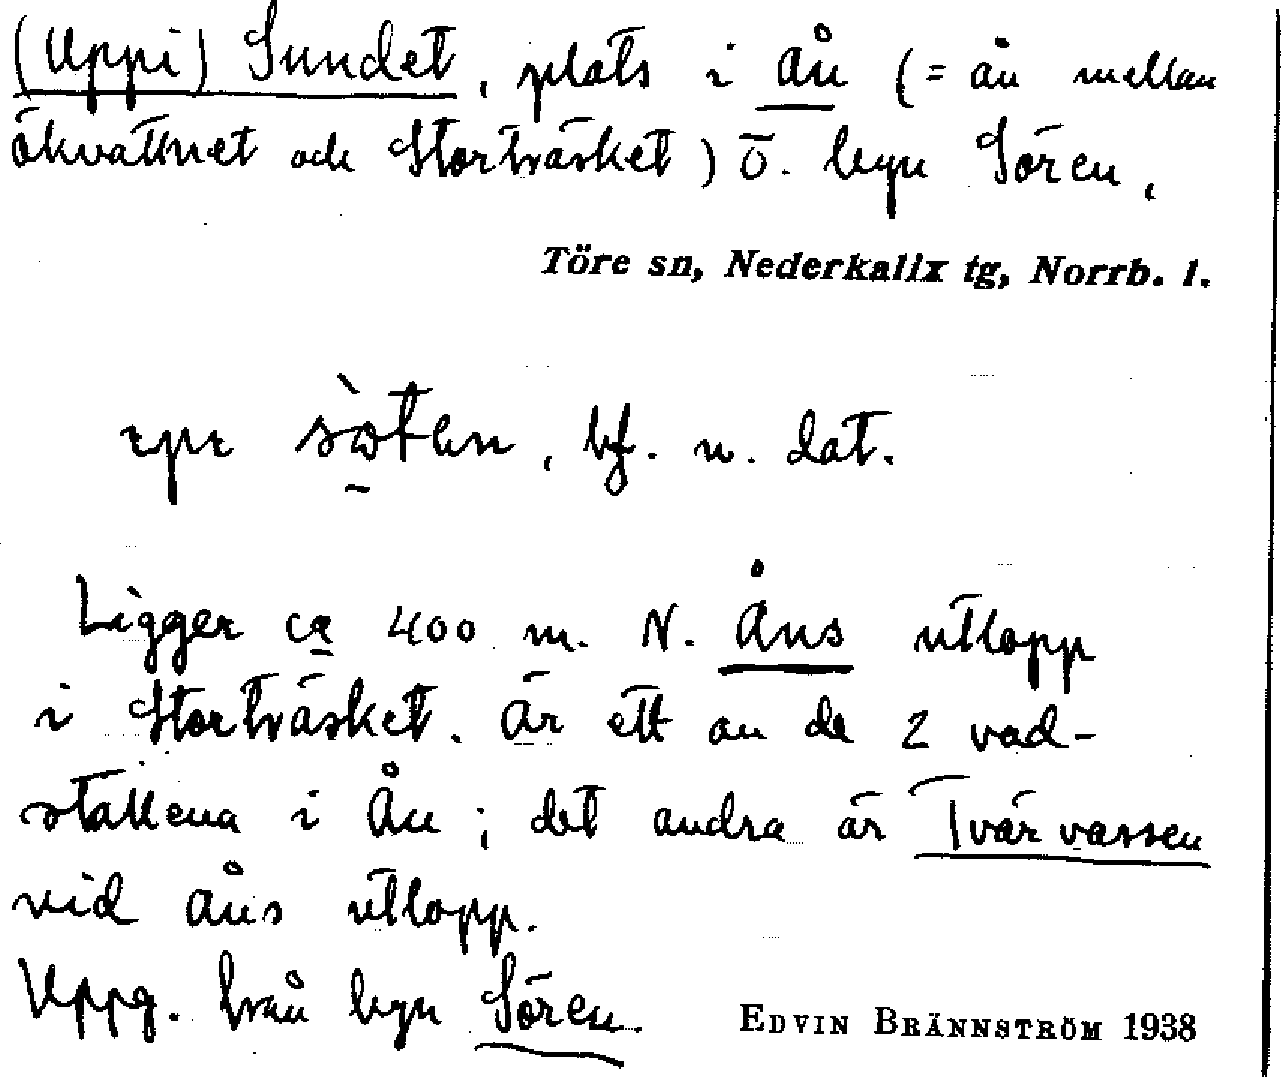 (Uppi) Sundet, plats i Ån (= ån mellan
Ökvattnet och Storträsket) ö. byn Sören,
Töre sn, Nederkalix tg, Norrb. l.
bf. n. dat.
Ligger ca 400 m. N. Åns utlopp
i Storträsket. Är ett av de 2 vad-
ställena i Ån; det andra är Tvärvassen
vid åns utlopp.
Uppg. från byn Sören.
EDVIN BRÄNNSTRÖM 1938